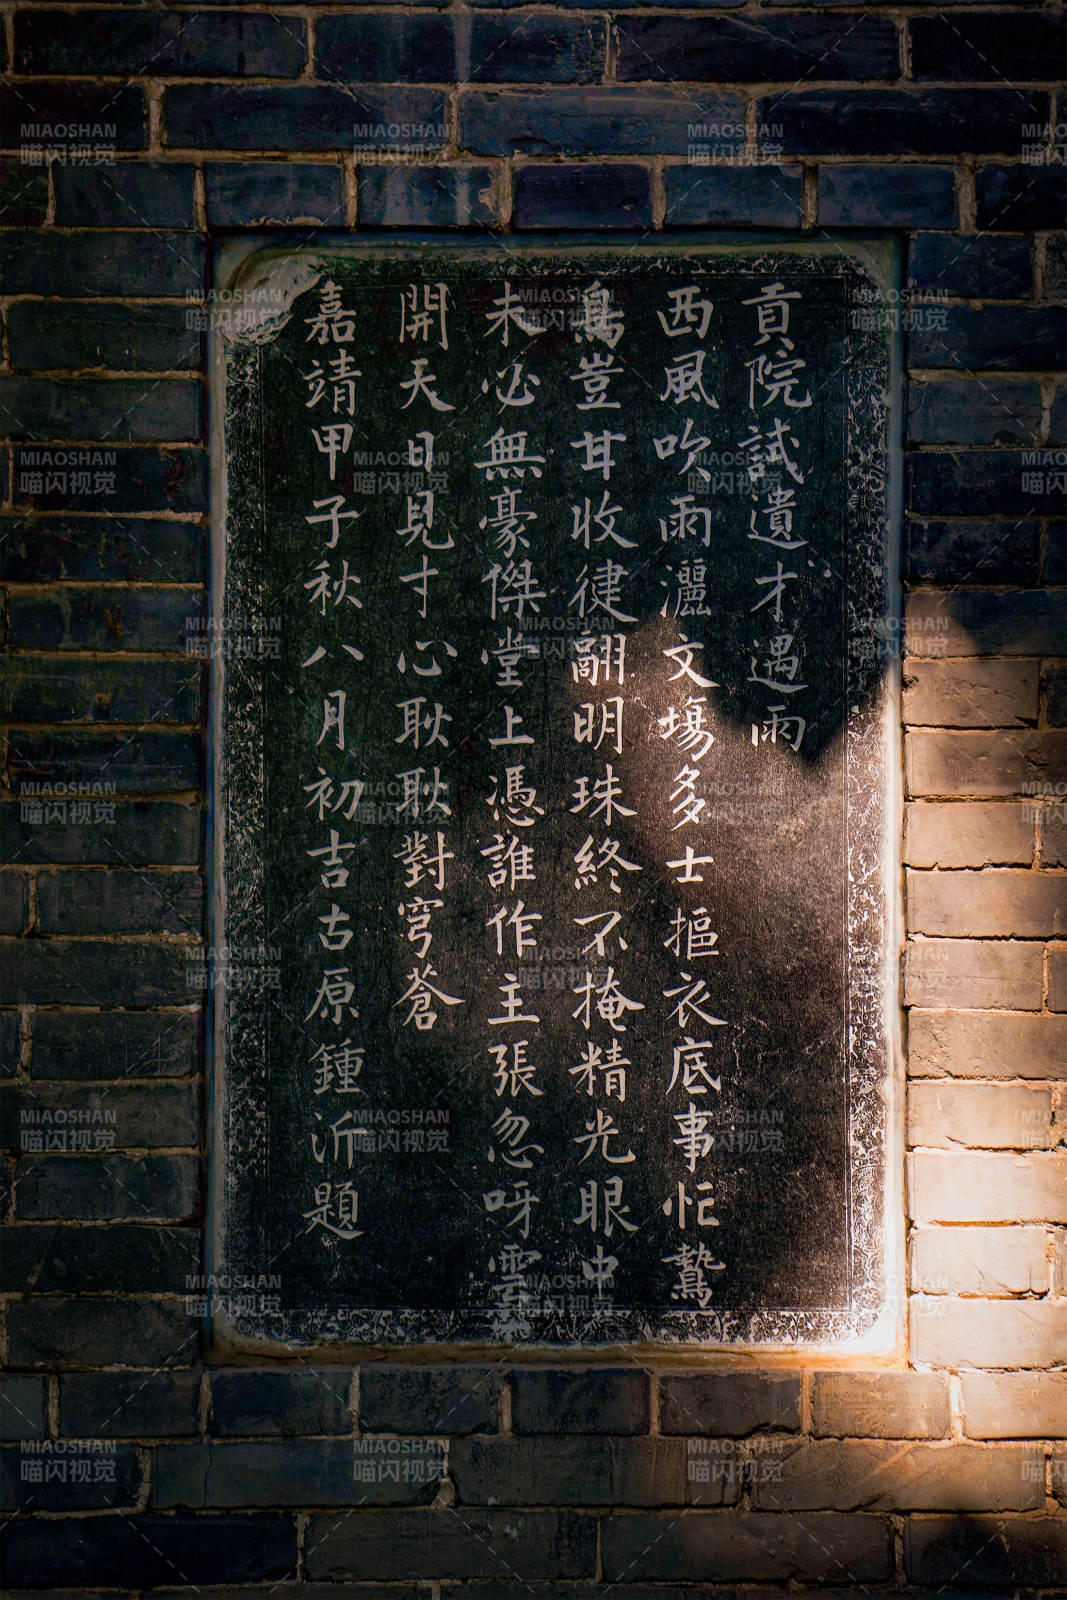 貢院試遺才遇雨
西風吹雨灑文場多士摳衣底事忙鷙
鳥豈甘收健翮明珠終不掩精光眼中
未必無豪傑堂上憑誰作主張忽呀雲
開天日見寸心耿耿對穹蒼
嘉靖甲子秋八月初吉古原鍾沂題
MIAOSHAN
喵闪视觉